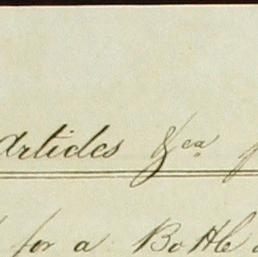 Articles &ca
for a Bottle